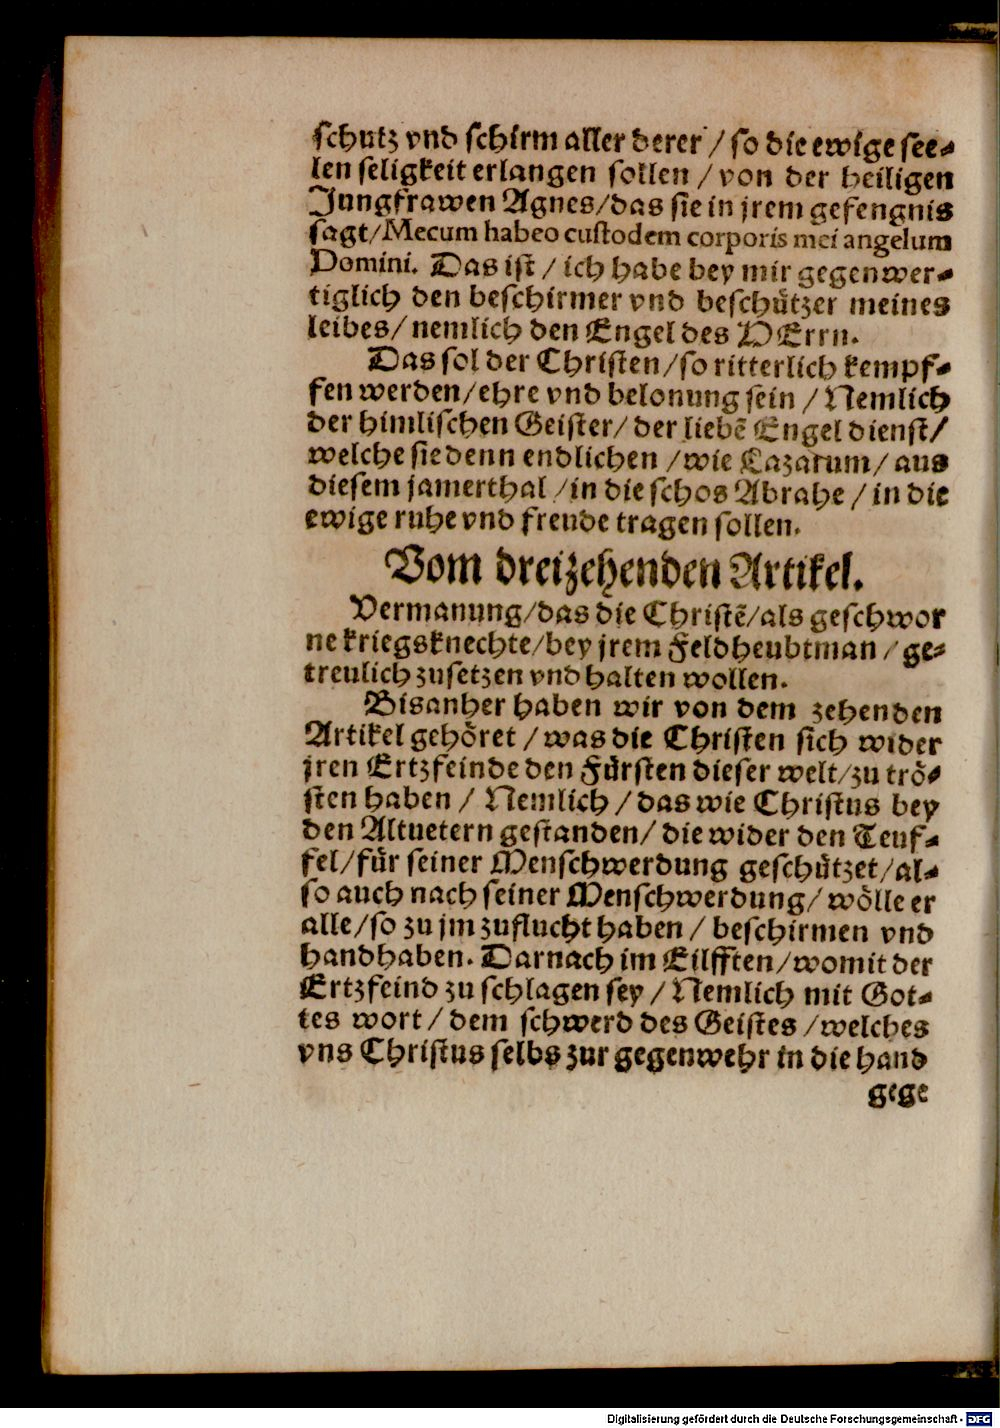 schutz vnd schirm aller derer / so die ewige see-
len seligkeit erlangen sollen / von der heiligen
Jungfrawen Agnes/das sie in jrem gefengnis
sagt/Mecum habeo custodem corporis mei angelum
Domini. Das ist / ich habe bey mir gegenwer-
tiglich den beschirmer vnd beschützer meines
leibes/ nemlich den Engel des HErrn.
Das sol der Christen/so ritterlich kempf-
fen werden/ehre vnd belonung sein / Nemlich
der himlischen Geister/ der liebē Engel dienst/
welche sie denn endlichen /wie Lazarum/ aus
diesem jamerthal /in die schos Abrahe / in die
ewige ruhe vnd freude tragen sollen.
Vom dreizehenden Artikel.
Vermanung/das die Christē/als geschwor
ne kriegsknechte/bey jrem Feldheubtman / ge-
treulich zusetzen vnd halten wollen.
Bisanher haben wir von dem zehenden
Artikel gehöret / was die Christen sich wider
jren Ertzfeinde den Fürsten dieser welt/zu trö-
sten haben / Nemlich / das wie Christus bey
den Altuetern gestanden/ die wider den Teuf-
fel/für seiner Menschwerdung geschützet/al-
so auch nach seiner Menschwerdung/ wölle er
alle/so zu jm zuflucht haben / beschirmen vnd
handhaben. Darnach im Eilfften/womit der
Ertzfeind zu schlagen sey / Nemlich mit Got-
tes wort / dem schwerd des Geistes /welches
vns Christus selbs zur gegenwehr in die hand
gege
Digitalisierung gefördert durch die Deutsche Forschungsgemeinschaft - DFG